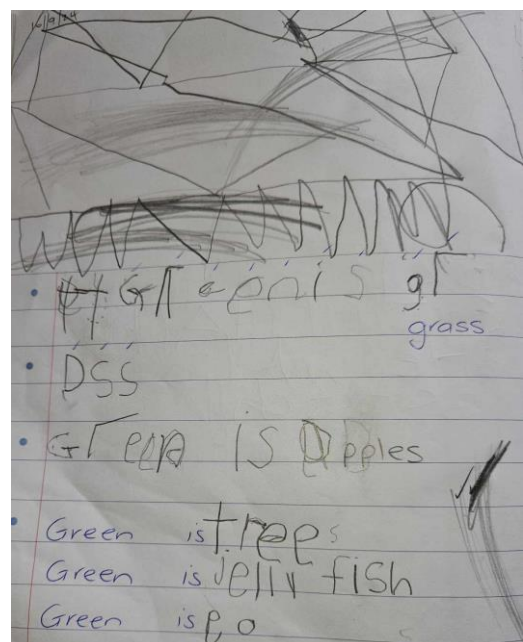 16/9/24
Green is gr
grass
ass
Green is Apples
Green is trees
Green is jelly fish
Green is